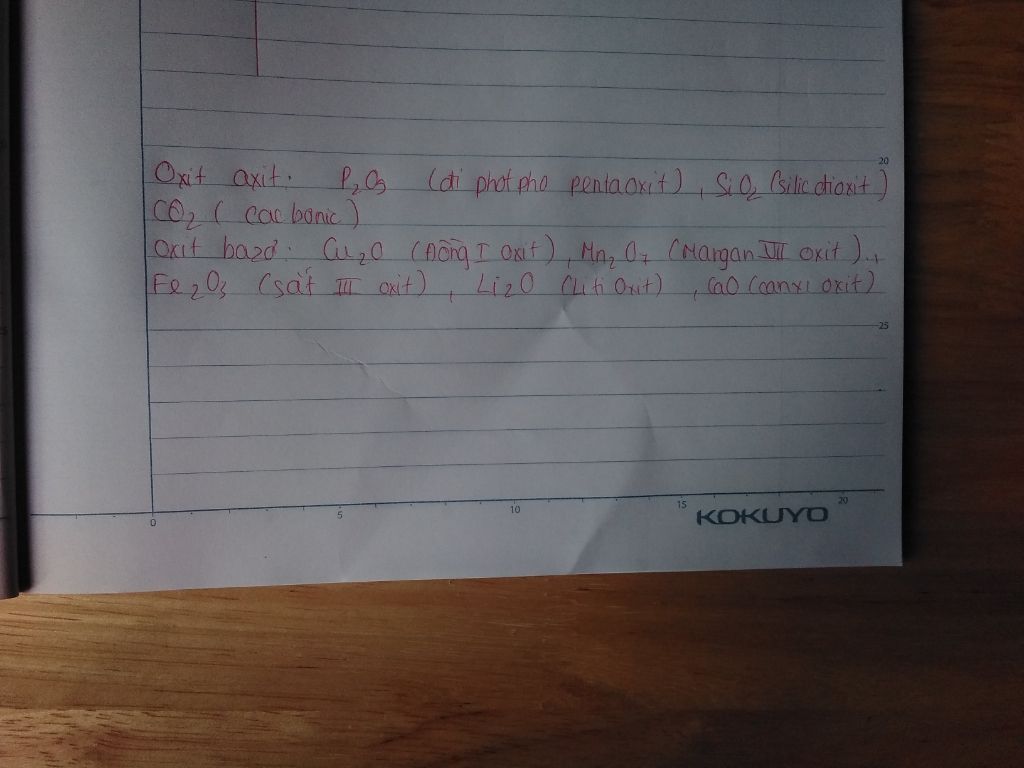 20
Oxit axit: P₂O₃ (đi phot pho pentaoxit), SiO₂ (silic đioxit)
CO₂ (cac bonic)
Oxit bazơ: Cu₂O (Đồng I oxit), Mn₂O₇ (Mangan VII oxit),
Fe₂O₃ (sắt III oxit), Li₂O (Liti Oxit), CaO (canxi oxit)
25
0 5 10 15 20
KOKUYO